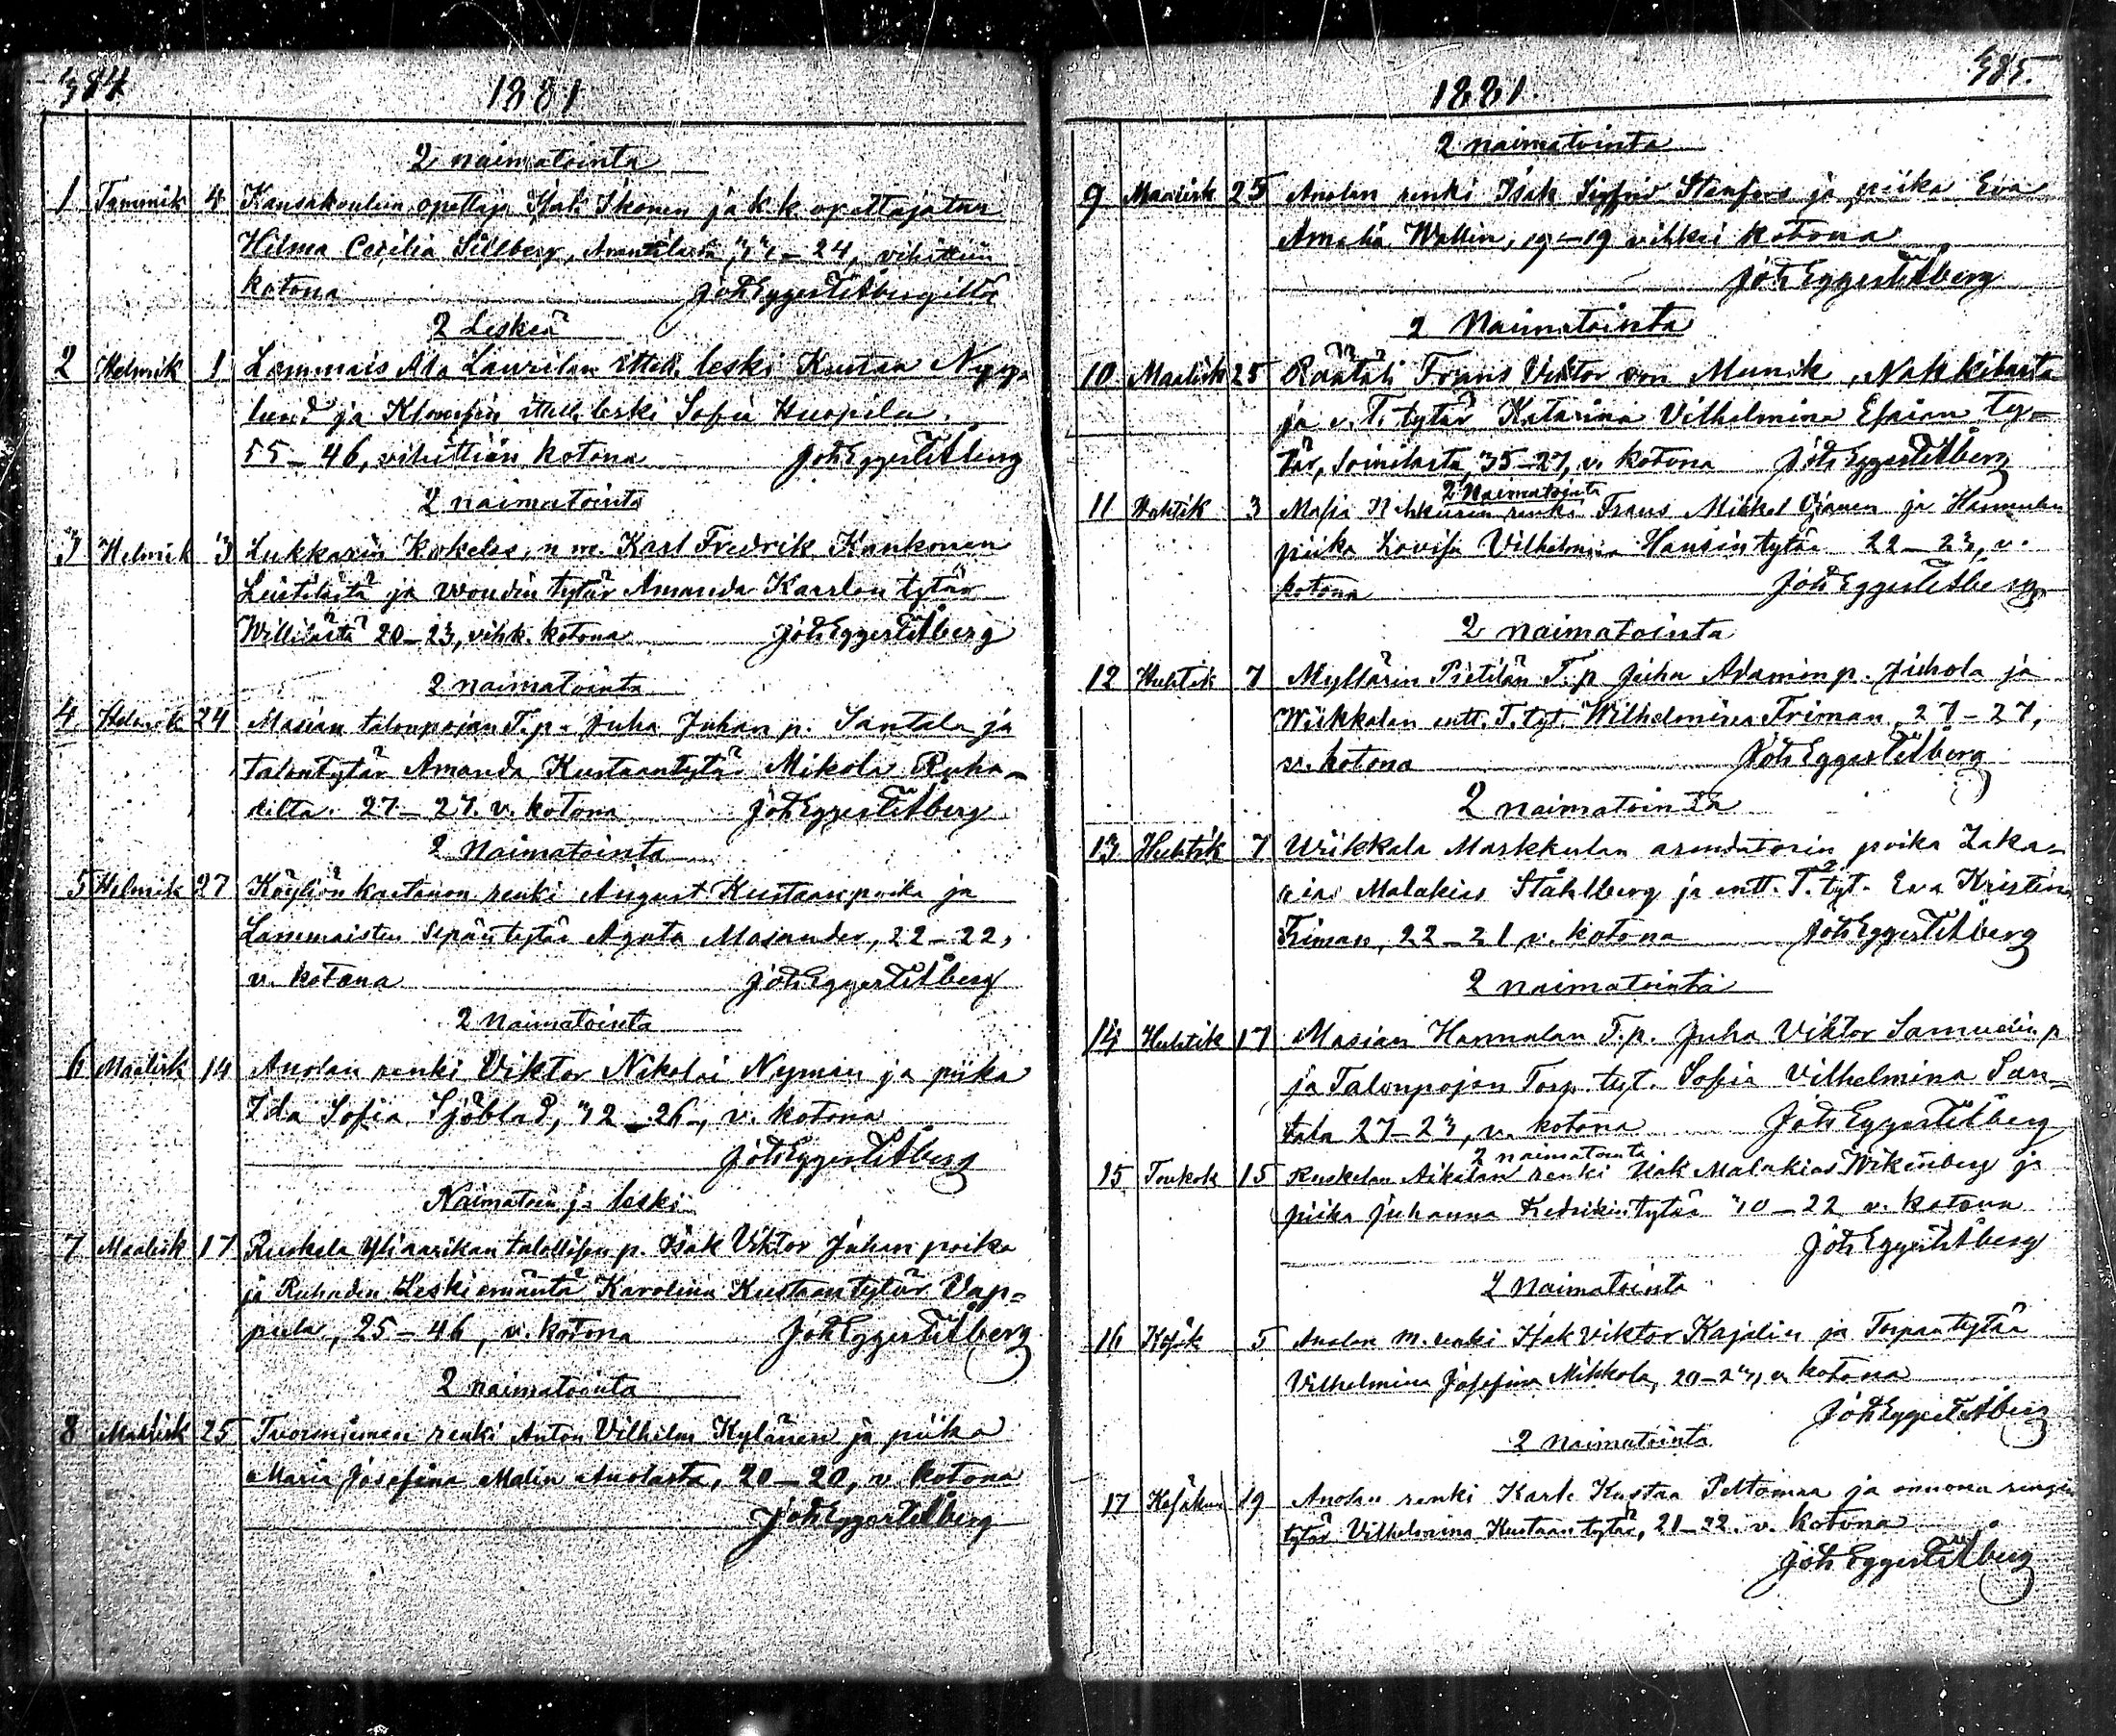 384
1881
2 naimatointa
1 Tammik 4 Kansakoulun opettaja Isak Ikonen ja k. k. opettajatar
Hilma Cecilia Sillberg, Anantilasta, 34 – 24, vihittiin
kotona Joh Eggert Tit Åbergilta
2 Leskeä
2 Helmik 1 Lammais Ala Laurilan ittell. leski Kustaa Nyy-
lund ja ittell. leski Sofia Huopila.
55 – 46, vihittiin kotona Joh Eggert Tit Åberg
2 naimatointa
3 Helmik 3 Lukkarin Kokelas, n. m. Karl Fredrik Kankonen
ja Woudin tytär Amanda Kaarlon tytär
Willilästä 20 – 23, vihk. kotona Joh Eggert Tit Åberg
2 naimatointa
4 Helmik 24 Masian talonpojan T. p. Juha Juhan p. Santala ja
talontytär Amanda Kustaantytär Mikola Ruha-
delta. 27 – 27. v. kotona Joh Eggert Tit Åberg
2 Naimatointa
5 Helmik 27 Köyliön kartanon renki August Kustaanpoika ja
Lammaisten Sepäntytär Agata Masander, 22 – 22,
v. kotona Joh Eggert Tit Åberg
2 Naimatointa
6 Maalisk 14 Anolan renki Viktor Nikolai Nyman ja piika
Ida Sofia Sjöblad, 32 – 26, v. kotona
Joh Eggert Tit Åberg
Naimatoin ja leski
7 Maalisk 17 Ruskela talollisen p. Isak Viktor Juhan poika
ja Ruhaden Leskiemäntä Karolina Kustaantytär Vap-
pula, 25 – 46, v. kotona Joh Eggert Tit Åberg
2 naimatointa
8 Maalisk 25 Tuorsniemen renki Anton Vilhelm Kylänen ja piika
Maria Josefina Malin Anolasta, 20 – 20, v. kotona
Joh Eggert Tit Åberg
385.
1881.
2 naimatointa
9 Maalisk 25 Anolan renki Isak Sigfrid Stenfors ja piika Eva
Amalia Wallin, 19 – 19 vihkei kotona
Joh Eggert Tit Åberg
2 Naimatointa
10 Maalisk 25 Räätäli Frans Viktor von Munik, Nakkilasta
ja v. T. tytär Katarina Vilhelmina Esaian ty-
tär, Soinilasta, 35 – 27, v. kotona Joh Eggert Tit Åberg
2 Naimatointa
11 Huhtik 3 Masia renki Frans Mikkel Ojanen ja Hannulan
piika Lovisa Vilhelmina Hansin tytär 22 – 23, v.
kotona Joh Eggert Tit Åberg
2 naimatointa
12 Huhtik 7 Myllärin Pietilän T. p. Juha Adamin p. Juhola ja
Wiikkalan entt. T. tyt. Wilhelmina Friman, 27 – 27,
v. kotona Joh Eggert Tit Åberg
2 naimatointa
13 Huhtik 7 Wiikkala Markkulan arendatorin poika Zaka-
rias Malakias Ståhlberg ja entt. T. tyt. Eva Kristina
Friman, 22 – 21 v. kotona Joh Eggert Tit Åberg
2 naimatointa
14 Huhtik 17 Masian Hannulan T. p. Juha Viktor Samuelin p.
ja Talonpojan Torp. tyt. Sofia Vilhelmina San-
tala 27 – 23, v. kotona Joh Eggert Tit Åberg
2 naimatointa
15 Toukok 15 Ruskelan renki Isak Malakias Wikenberg ja
piika Juhanna Fredrikintytär 30 – 22 v. kotona
Joh Eggert Tit Åberg
2 Naimatointa
16 Kesäk 5 Anolan m. renki Isak Viktor Kajalin ja Torpan tytär
Vilhelmina Josefina Mikkola, 20 – 23, v. kotona
Joh Eggert Tit Åberg
2 naimatointa
17 Kesäkuu 19 Anolan renki Karl Kustaa Peltomaa ja rengin
tytär Vilhelmina Kustaan tytär, 21 – 22. v. kotona
Joh Eggert Tit Åberg